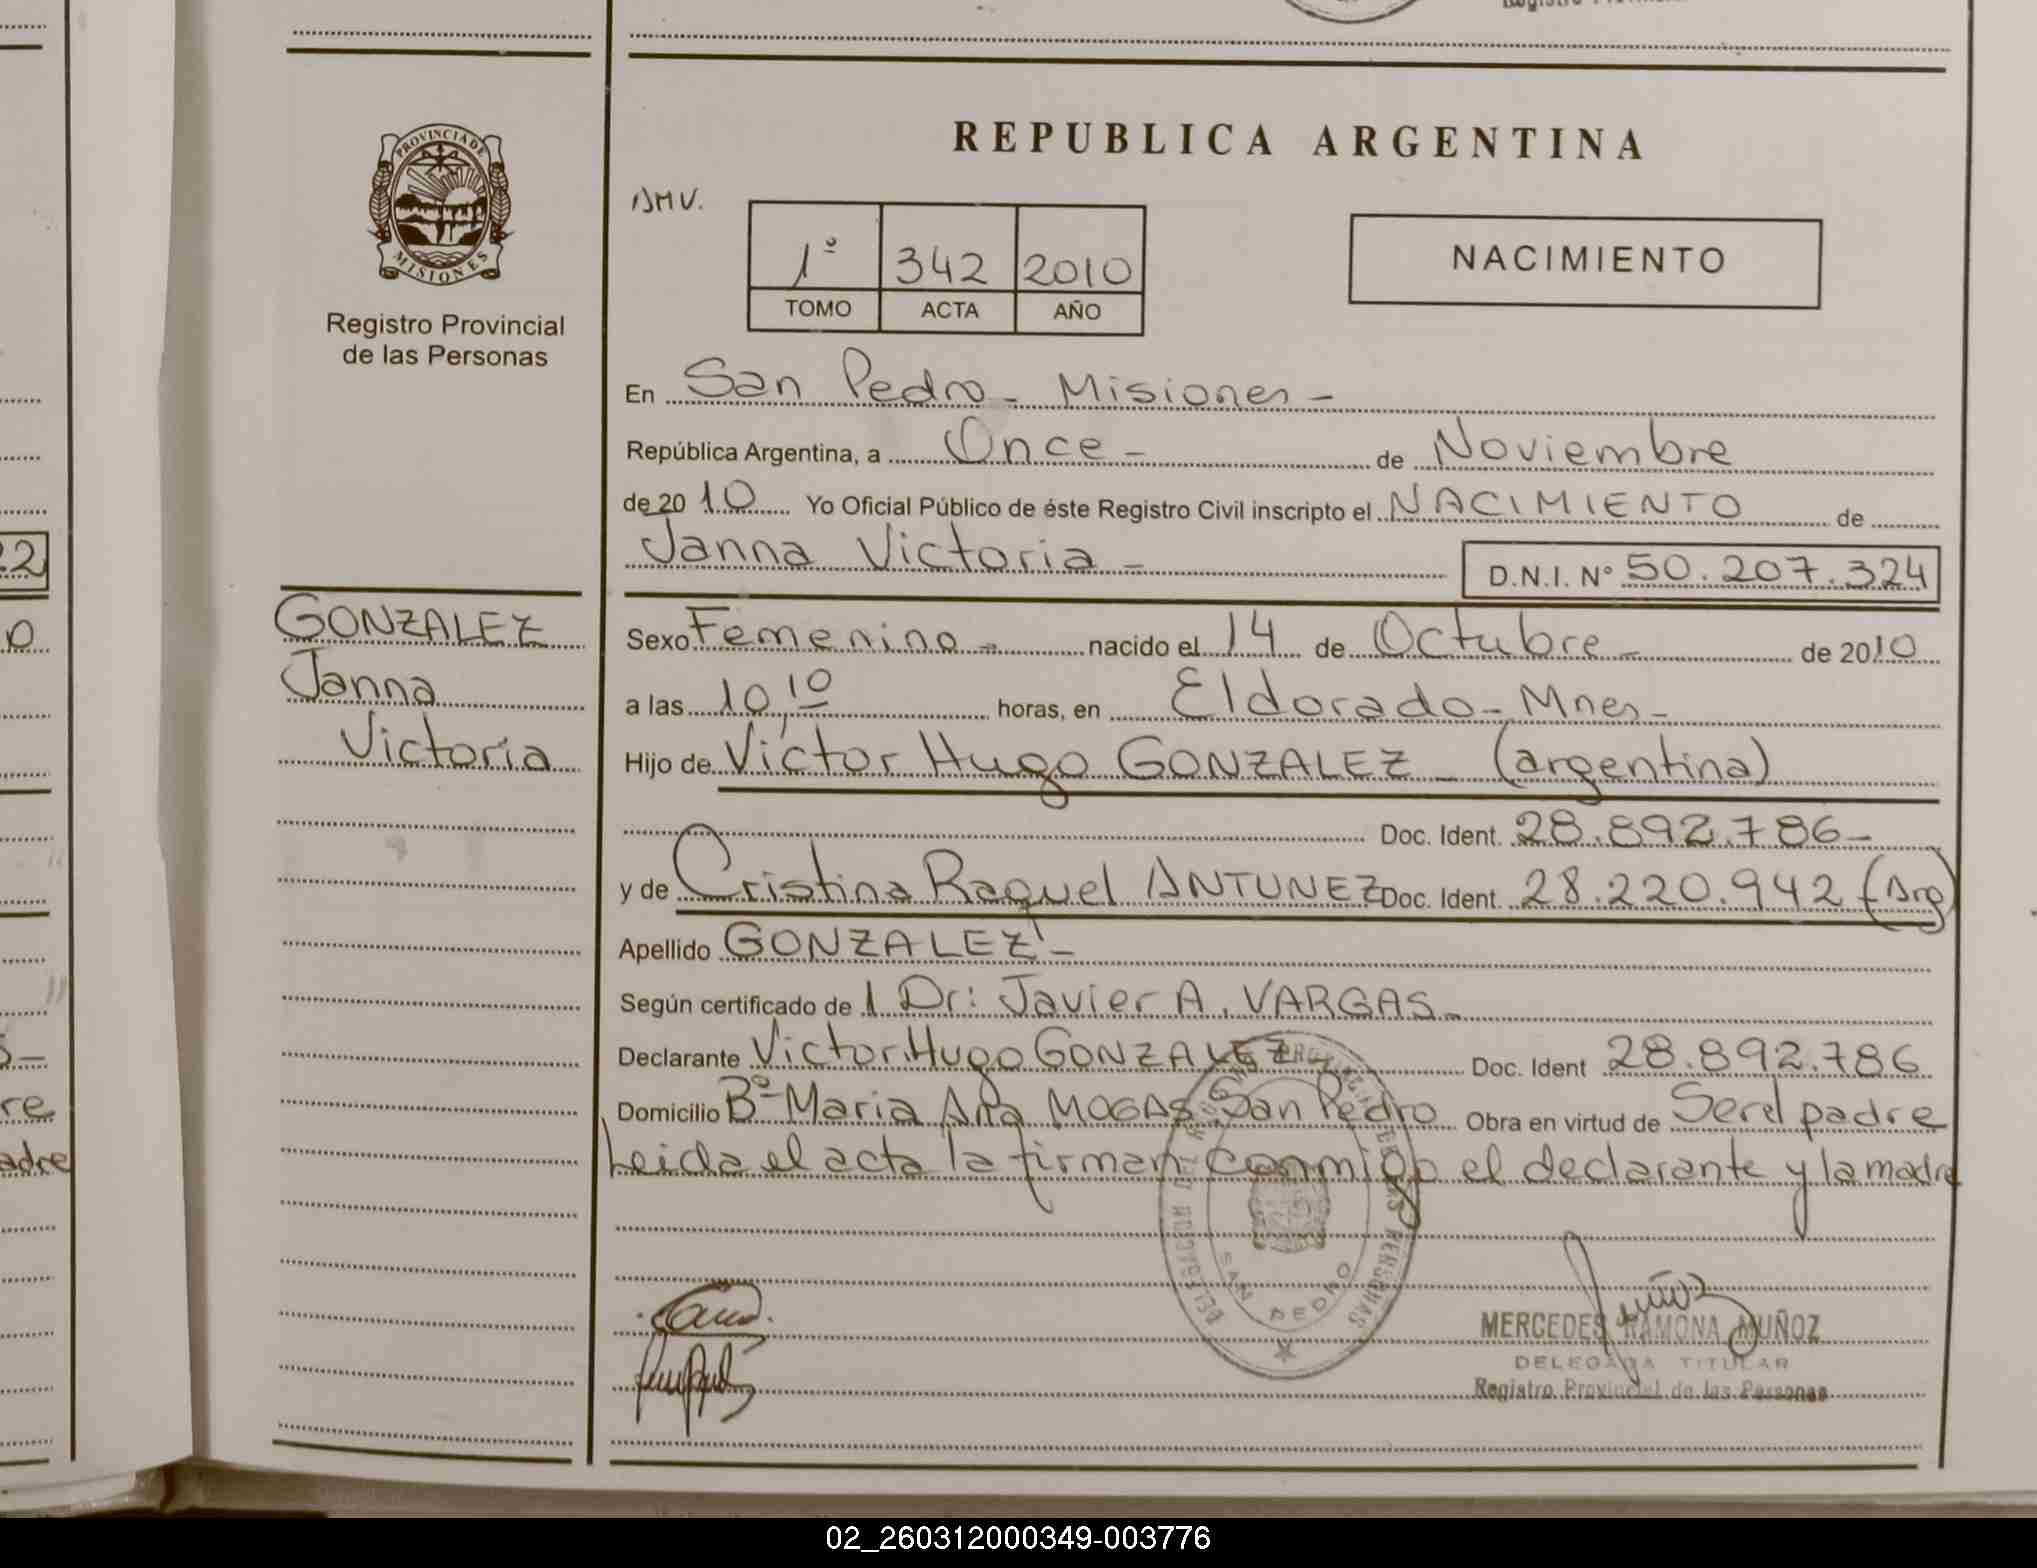 REPUBLICA ARGENTINA
PROVINCIA DE
MISIONES
Registro Provincial
de las Personas
AMV.
1º 342 2010
TOMO ACTA AÑO
NACIMIENTO
En San Pedro - Misiones -
República Argentina, a Once - de Noviembre
de 2010 Yo Oficial Público de éste Registro Civil inscripto el NACIMIENTO de
Janna Victoria - D.N.I. Nº 50.207.324
GONZALEZ
Janna
Victoria
Sexo Femenino - nacido el 14 de Octubre - de 2010
a las 10,10 horas, en Eldorado - Mnes -
Hijo de Víctor Hugo GONZALEZ - (argentina)
Doc. Ident. 28.892.786 -
y de Cristina Raquel ANTUNEZ Doc. Ident. 28.220.942 (Arg)
Apellido GONZALEZ -
Según certificado de 1 Dr: Javier A. VARGAS -
Declarante Victor Hugo GONZALEZ - Doc. Ident 28.892.786
Domicilio Bº Maria Ana MOGAS San Pedro Obra en virtud de Ser el padre
Leida el acta la firman conmigo el declarante y la madre
SAN PEDRO
MERCEDES RAMONA MUÑOZ
DELEGADA TITULAR
Registro Provincial de las Personas
02_260312000349-003776